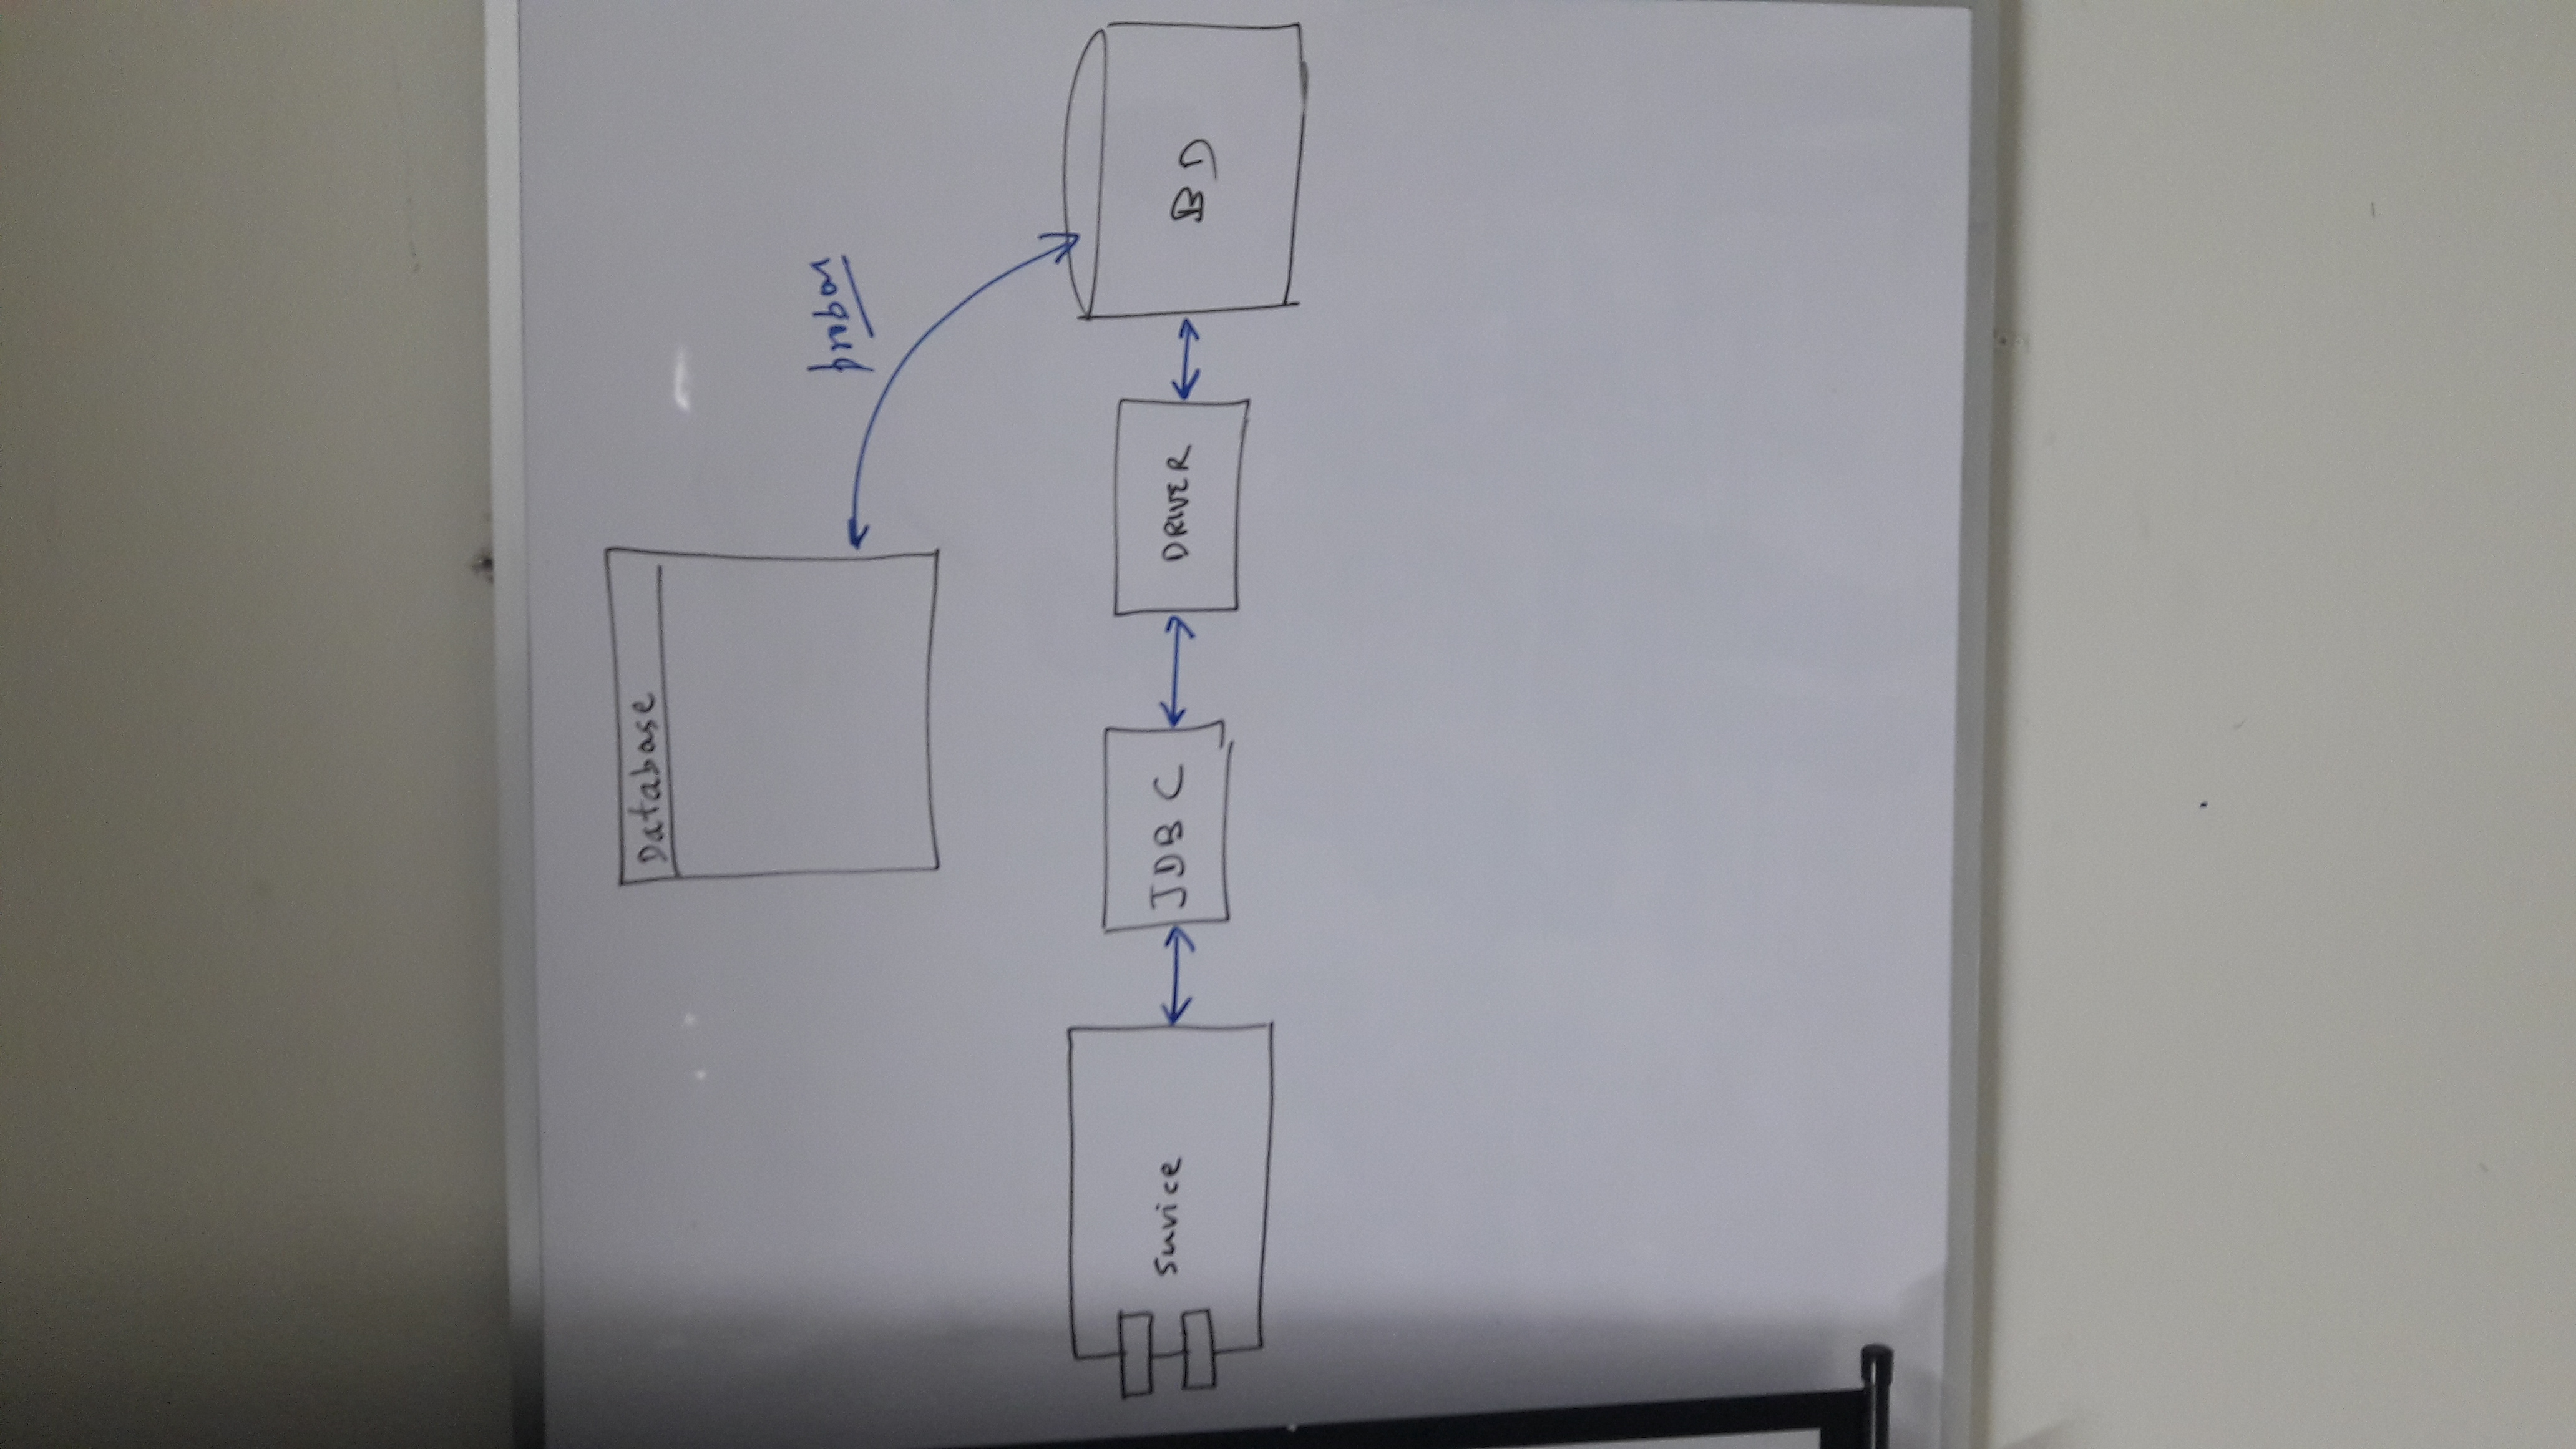 Database
probar
service
JDBC
DRIVER
BD